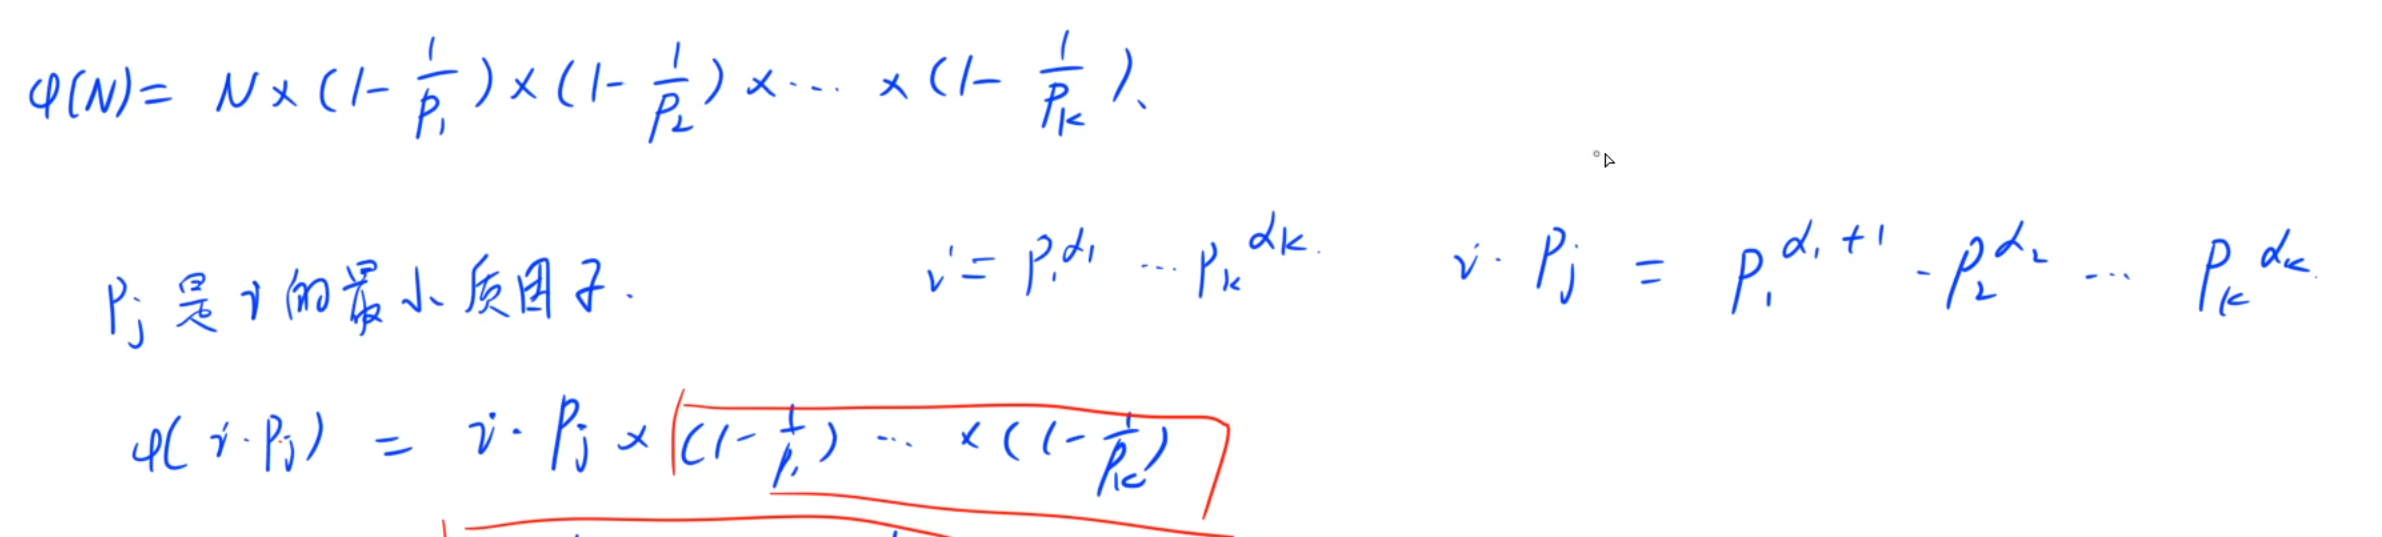 φ(N)= N×(1-1/P₁)×(1-1/P₂)×⋯×(1-1/Pₖ)、
Pⱼ是i的最小质因子. i=P₁^α₁ ⋯Pₖ^αₖ. i·Pⱼ = P₁^(α₁+1)·P₂^α₂ ⋯ Pₖ^αₖ.
φ(i·Pⱼ) = i·Pⱼ×(1-1/P₁)⋯×(1-1/Pₖ)